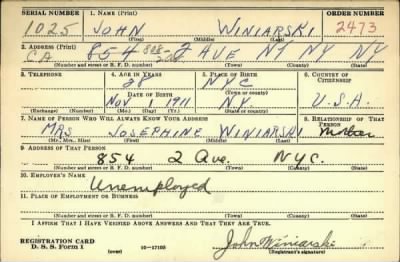 SERIAL NUMBER 1. NAME (Print) ORDER NUMBER
1025 JOHN WINIARSKI 2473
(First) (Middle) (Last)
2. ADDRESS (Print)
CA 854 2 AVE NY NY NY
(Number and street or R. F. D. number) (Town) (County) (State)
3. TELEPHONE 4. AGE IN YEARS 5. PLACE OF BIRTH 6. COUNTRY OF CITIZENSHIP
28 NYC
DATE OF BIRTH (Town or county)
NOV 1 1911 NY. U.S.A.
(Exchange) (Number) (Mo.) (Day) (Yr.) (State or country)
7. NAME OF PERSON WHO WILL ALWAYS KNOW YOUR ADDRESS 8. RELATIONSHIP OF THAT PERSON
MRS JOSEPHINE WINIARSKI Mother
(Mr., Mrs., Miss) (First) (Middle) (Last)
9. ADDRESS OF THAT PERSON
854 2 Ave. NYC.
(Number and street or R. F. D. number) (Town) (County) (State)
10. EMPLOYER'S NAME
Unemployed
11. PLACE OF EMPLOYMENT OR BUSINESS
(Number and street or R. F. D. number) (Town) (County) (State)
I AFFIRM THAT I HAVE VERIFIED ABOVE ANSWERS AND THAT THEY ARE TRUE.
REGISTRATION CARD
D. S. S. Form 1 (over) 16—17105 John Winiarski
(Registrant's signature)